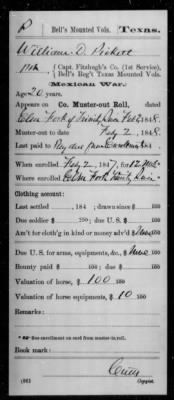 P | Bell's Mounted Vols. | Texas.
William D. Pickett
Pvt., { Capt. Fitzhugh's Co. (1st Service), Bell's Reg't Texas Mounted Vols.
Mexican War.
Age 20 years.
Appears on
Co. Muster-out Roll, dated
Elm Fork of Trinity Feb 2, 1848.
Muster-out to date Feby 2, 1848.
Last paid to
When enrolled Feby 2, 1847, for 12 mos.
Where enrolled Elm Fork Trinity
Clothing account:
Last settled , 184 ; drawn since $ 100
Due soldier $ 100; due U. S. $ 100
Am't for cloth'g in kind or money adv'd $ None 100
Due U. S. for arms, equipments, &c., $ None 100
Bounty paid $ 100; due $ 100
Valuation of horse, $ 100 100
Valuation horse equipments, $ 10 100
Remarks:
*See enrollment on card from muster-in roll.
Book mark:
Copyist.